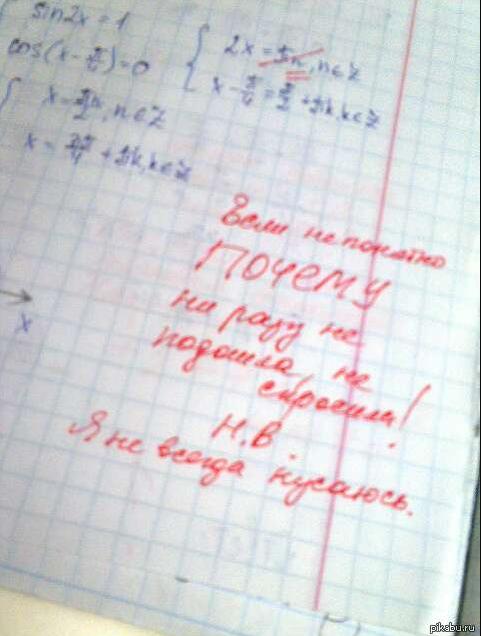 sin2x = 1
cos(x - π/4) = 0
2x = πn, n∈Z
x - π/4 = π/2 + πk, k∈Z
x = πn/2, n∈Z
x = 3π/4 + πk, k∈Z
Если непонятно
ПОЧЕМУ
ни разу не
подошла, не
спросила!
Н.В
Я не всегда кусаюсь.
x
pikabu.ru